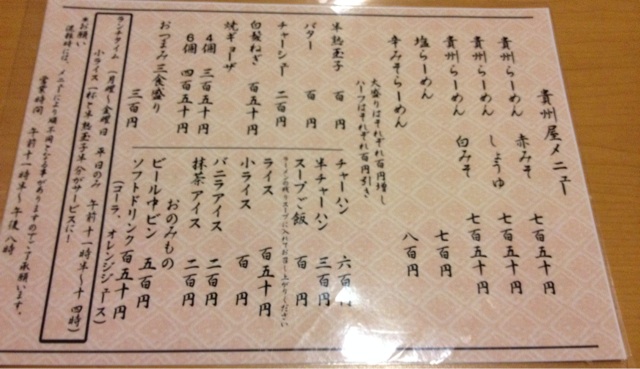 貴州屋メニュー
貴州らーめん 赤みそ 七百五十円
貴州らーめん しょうゆ 七百五十円
貴州らーめん 白みそ 七百五十円
塩らーめん 七百円
辛みそらーめん 八百円
大盛りはそれぞれ百円増し
ハーフはそれぞれ百円引き
半熟玉子 百円
バター 百円
チャーシュー 二百円
白髪ねぎ 百五十円
焼ギョーザ
4個 三百五十円
6個 四百五十円
おつまみ三食盛り 三百円
チャーハン 六百円
半チャーハン 三百円
スープご飯 百円
ラーメンの残りスープに入れてお召し上がりください
ライス 百五十円
小ライス 百円
バニラアイス 二百円
抹茶アイス 二百円
おのみもの
ビール中ビン 五百円
ソフトドリンク 百五十円
(コーラ、オレンジジュース)
ランチタイム (月曜〜金曜日 平日のみ 午前十一時半〜十四時)
小ライス一杯と半熟玉子半分がサービスに!
*お願い
混雑時には、メニューにより順不同となる事がありますのでご了承願います。
営業時間 午前十一時半〜午後八時